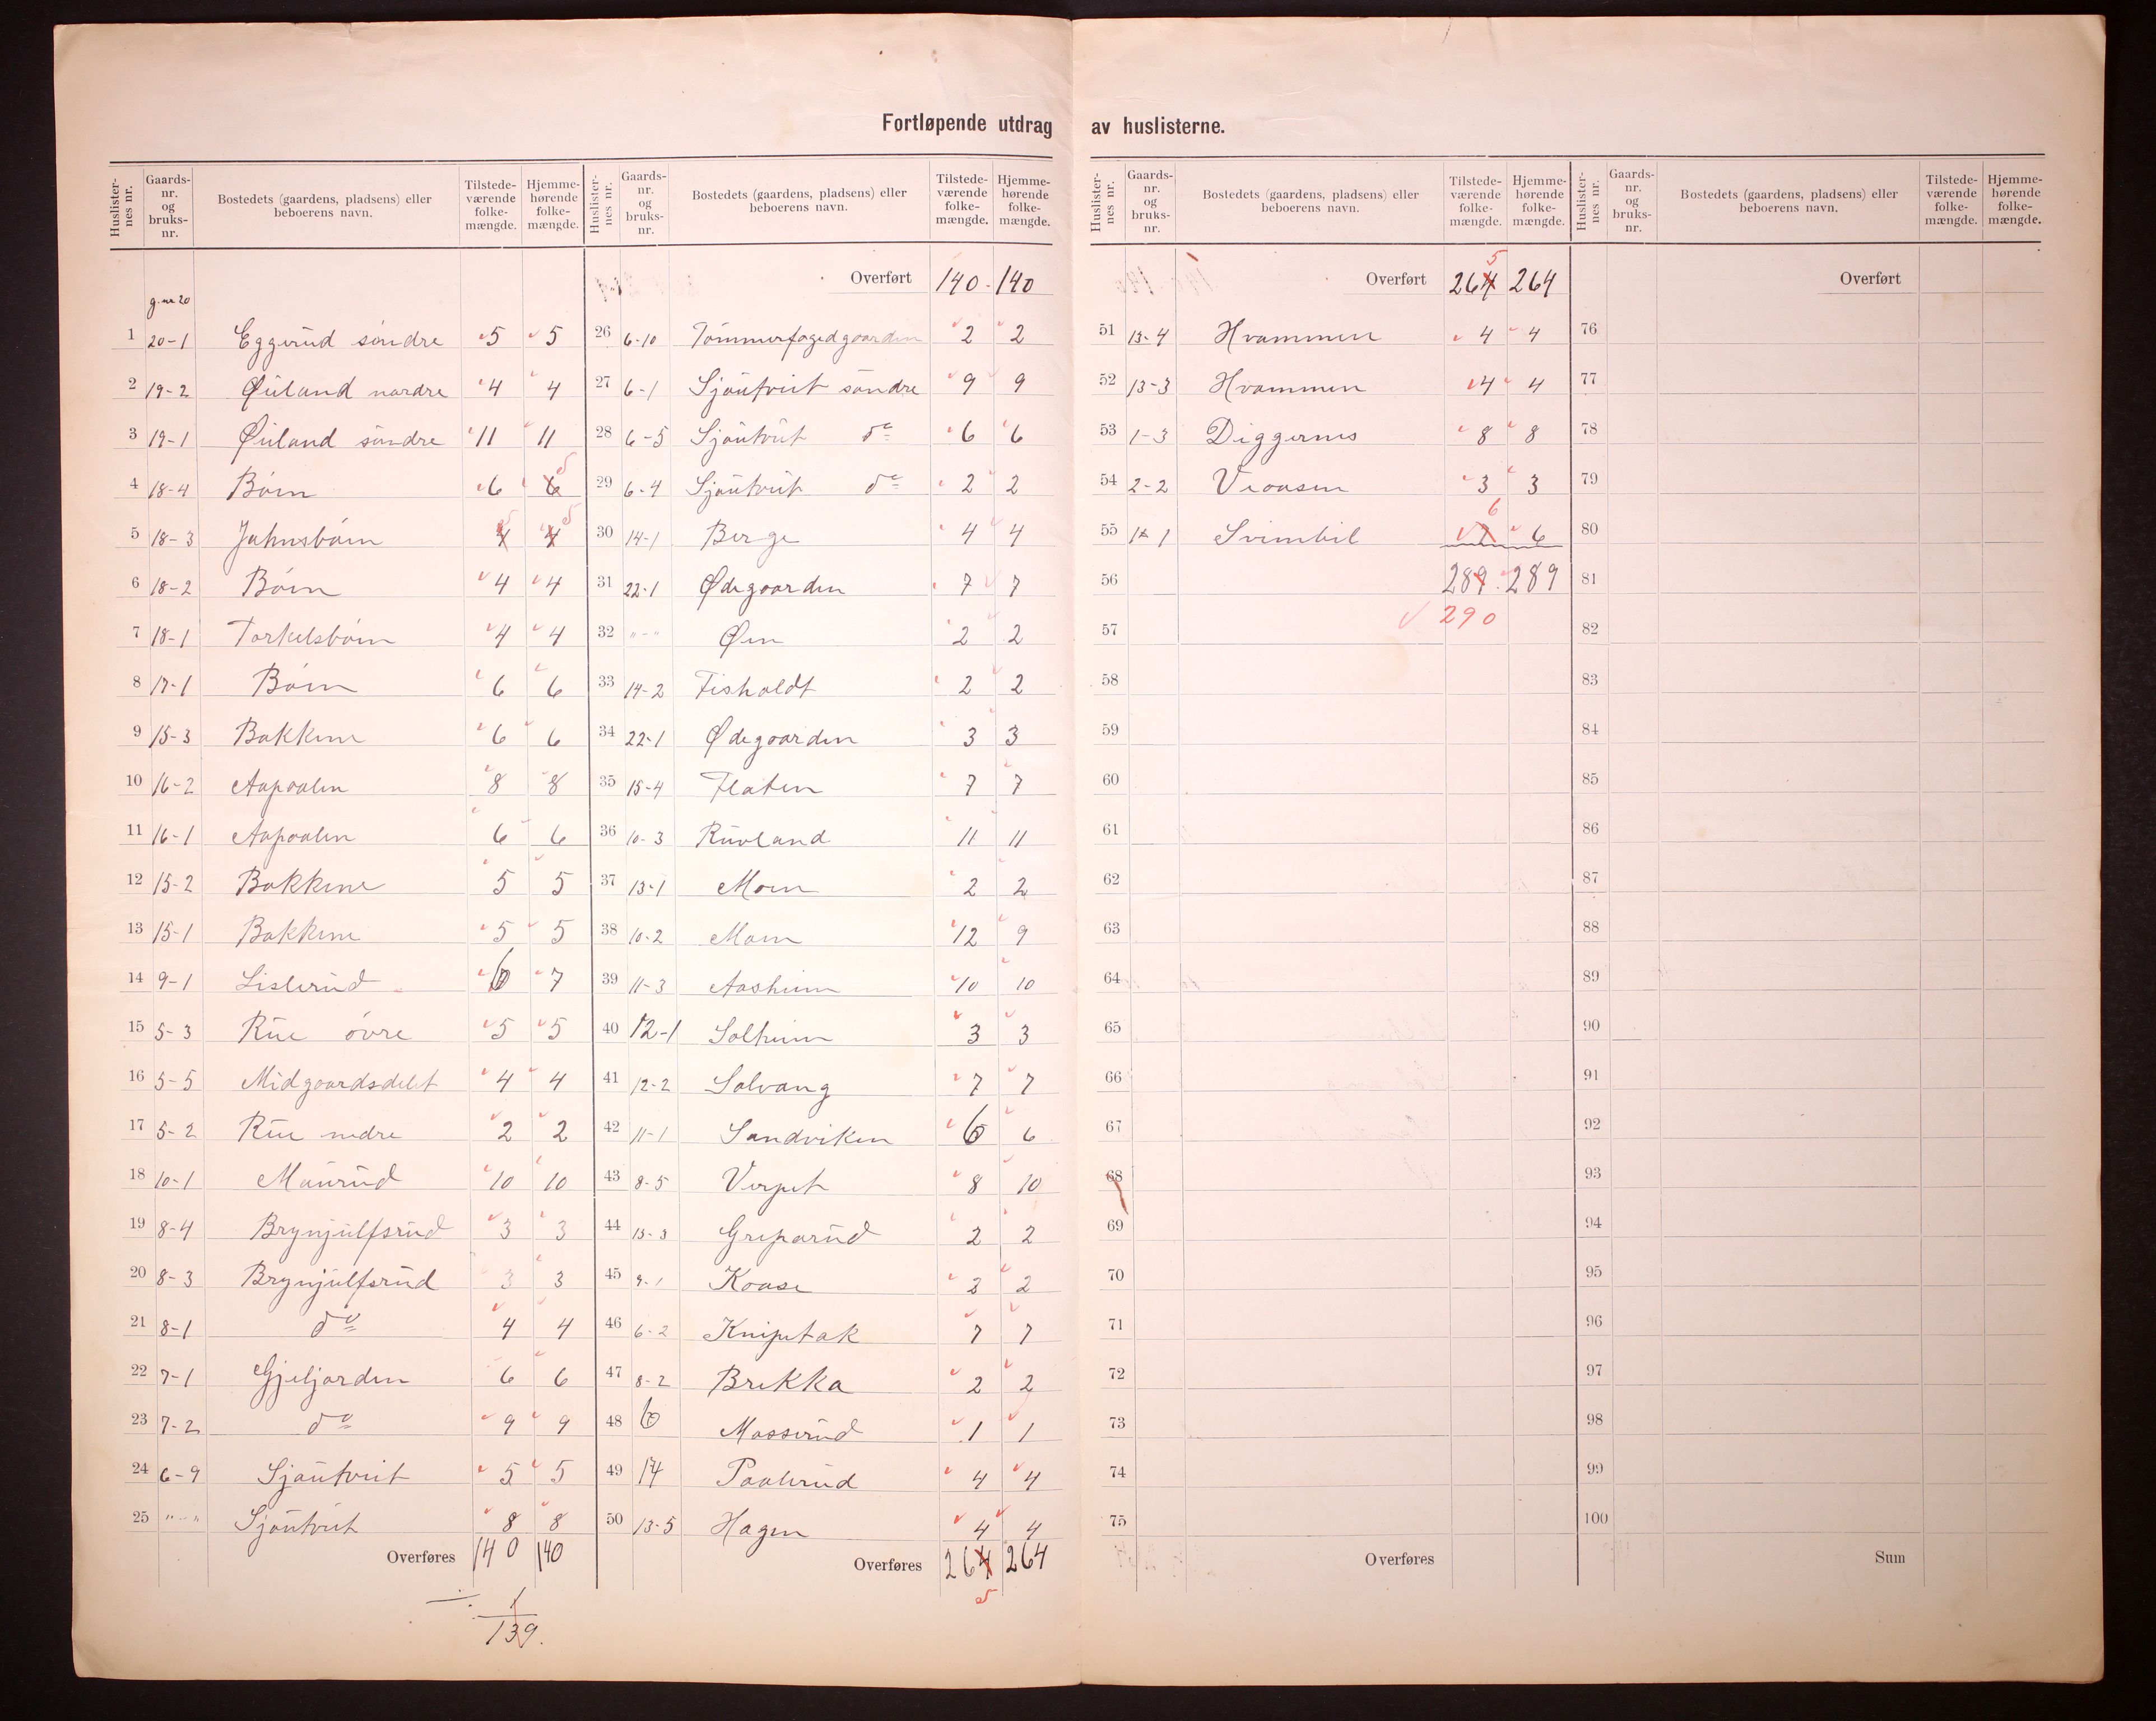 Fortløpende utdrag av huslisterne.
Huslister-nes nr. Gaards-nr. og bruks-nr. Bostedets (gaardens, pladsens) eller beboerens navn. Tilstede-værende folke-mængde. Hjemme-hørende folke-mængde.
g.nr 20
1 20-1 Eggerud söndre 5 5
2 19-2 Øiland nordre 4 4
3 19-1 Øiland söndre 11 11
4 18-4 Böen 6 6 5
5 18-3 Jahnsböen 4 5 4 5
6 18-2 Böen 4 4
7 18-1 Torkelsböen 4 4
8 17-1 Böen 6 6
9 15-3 Bakkene 6 6
10 16-2 Aapaalen 8 8
11 16-1 Aapaalen 6 6
12 15-2 Bakkene 5 5
13 15-1 Bakkene 5 5
14 9-1 Lislerud 6 7
15 5-3 Rue övre 5 5
16 5-5 Midgaardsdelet 4 4
17 5-2 Rue nedre 2 2
18 10-1 Maurud 10 10
19 8-4 Brynjulfsrud 3 3
20 8-3 Brynjulfsrud 3 3
21 8-1 do 4 4
22 7-1 Gjeljorden 6 6
23 7-2 do 9 9
24 6-9 Sjøutveit 5 5
25 " - " Sjøutveit 8 8
Overføres 140 140
÷ 1
139.
Huslister-nes nr. Gaards-nr. og bruks-nr. Bostedets (gaardens, pladsens) eller beboerens navn. Tilstede-værende folke-mængde. Hjemme-hørende folke-mængde.
Overført 140 - 140
26 6-10 Tömmerfogedgaarden 2 2
27 6-1 Sjöutveit söndre 9 9
28 6-5 Sjöutveit do 6 6
29 6-4 Sjöutveit do 2 2
30 14-1 Berge 4 4
31 22-1 Ødegaarden 7 7
32 " - " Øen 2 2
33 14-2 Fisholdt 2 2
34 22-1 Ødegaarden 3 3
35 15-4 Flaten 7 7
36 10-3 Ruvland 11 11
37 13-1 Moen 2 2
38 10-2 Moen 12 9
39 11-3 Aasheim 10 10
40 12-1 Solheim 3 3
41 12-2 Solvang 7 7
42 11-1 Sandviken 6 6
43 8-5 Verpet 8 10
44 13-3 Griparud 2 2
45 9-1 Kaase 2 2
46 6-2 Knipetak 7 7
47 8-2 Brekka 2 2
48 6 Masserud 1 1
49 14 Paalerud 4 4
50 13-5 Hagen 4 4
Overføres 264 5 264
Huslister-nes nr. Gaards-nr. og bruks-nr. Bostedets (gaardens, pladsens) eller beboerens navn. Tilstede-værende folke-mængde. Hjemme-hørende folke-mængde.
Overført 264 5 264
51 13-4 Hvammen 4 4
52 13-3 Hvammen 4 4
53 1-3 Diggernes 8 8
54 2-2 Vraasen 3 3
55 1-1 Svimbil 7 6 6
56 289 289
57 290
58
59
60
61
62
63
64
65
66
67
68
69
70
71
72
73
74
75
Overføres
Huslister-nes nr. Gaards-nr. og bruks-nr. Bostedets (gaardens, pladsens) eller beboerens navn. Tilstede-værende folke-mængde. Hjemme-hørende folke-mængde.
Overført
76
77
78
79
80
81
82
83
84
85
86
87
88
89
90
91
92
93
94
95
96
97
98
99
100
Sum